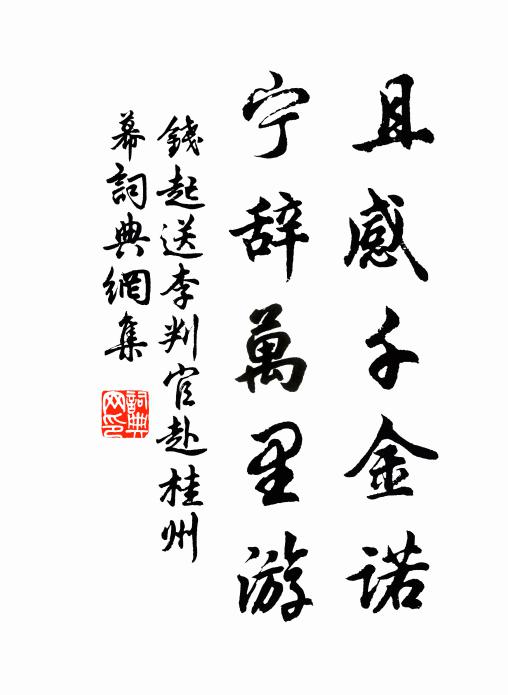 且感千金诺
宁辞萬里游
錢起送李判官赴桂州
幕詞典網集
詞典
网印